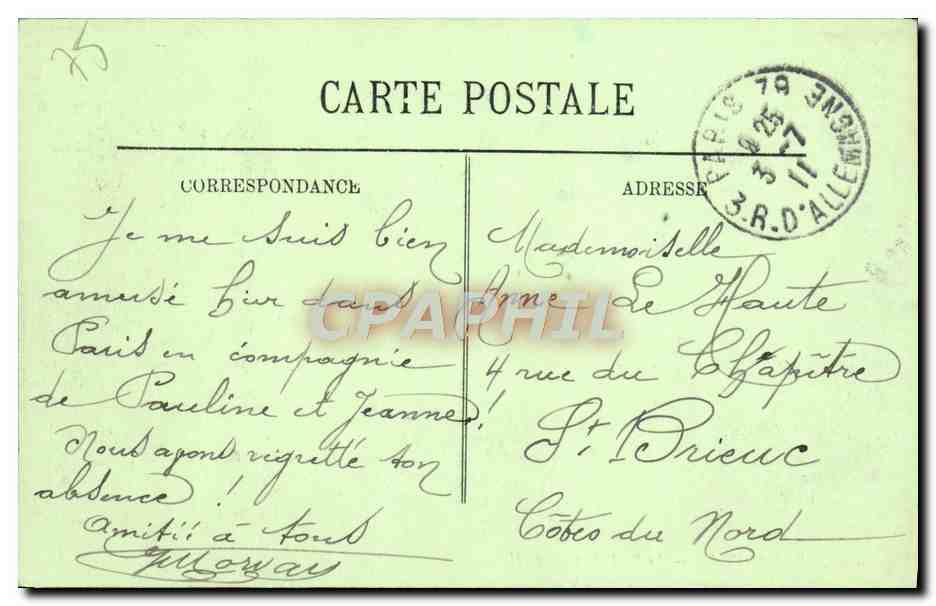 75
CARTE POSTALE
PARIS 79
3.R.D'ALLEMAGNE
25
3-7
11
CORRESPONDANCE
Je me suis bien
amusé hier dans
Paris en compagnie
de Pauline et Jeanne!
Nous avons regretté ton
absence!
Amitié à tous
ADRESSE
Mademoiselle
Anne Le Haute
4 rue du Chapître
St Brieuc
Côtes du Nord
CPAPHIL